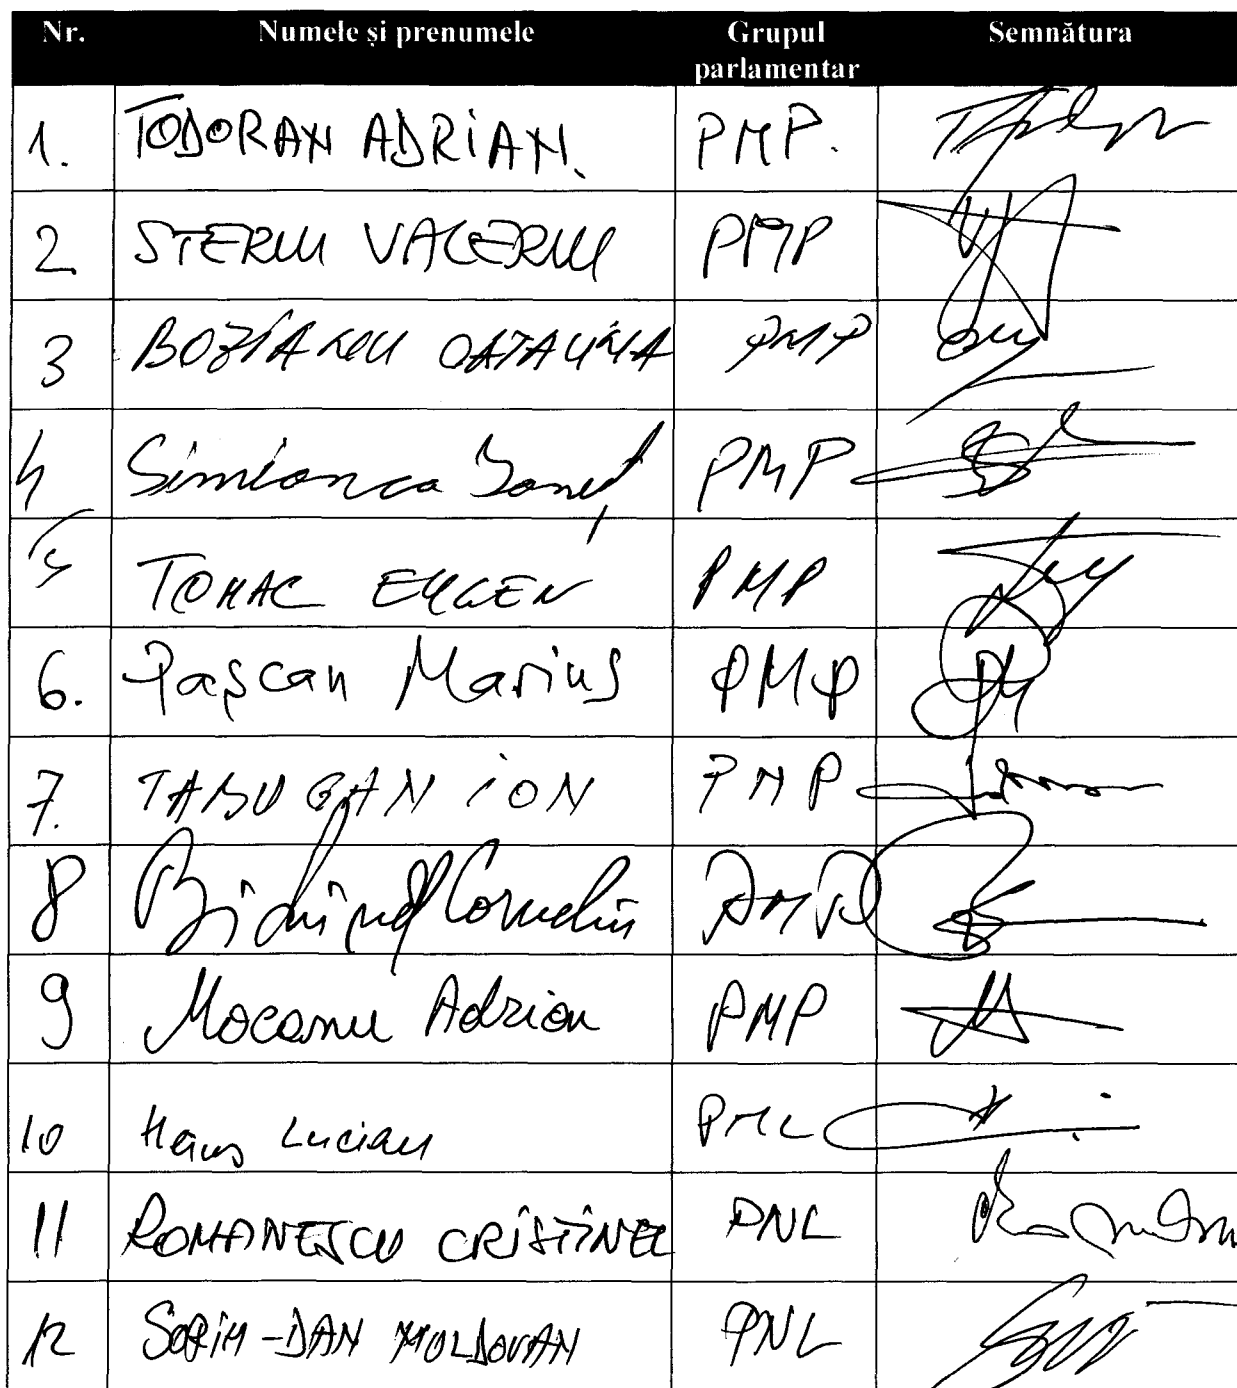 Nr. Numele și prenumele Grupul parlamentar Semnătura
1. TODORAN ADRIAN. PMP.
2 STERIU VALERIU PMP
3 BOZIANU CATALINA PMP
4 Simionca Ionuț PMP
5 TOMAC EUGEN PMP
6. Pașcan Marius PMP
7. TABUGAN ION PMP
8 Bichineț Corneliu PMP
9 Mocanu Adrian PMP
10 Heius Lucian
11 ROMANESCU CRISTINEL PNL
12 SORIN-DAN MOLDOVAN PNL